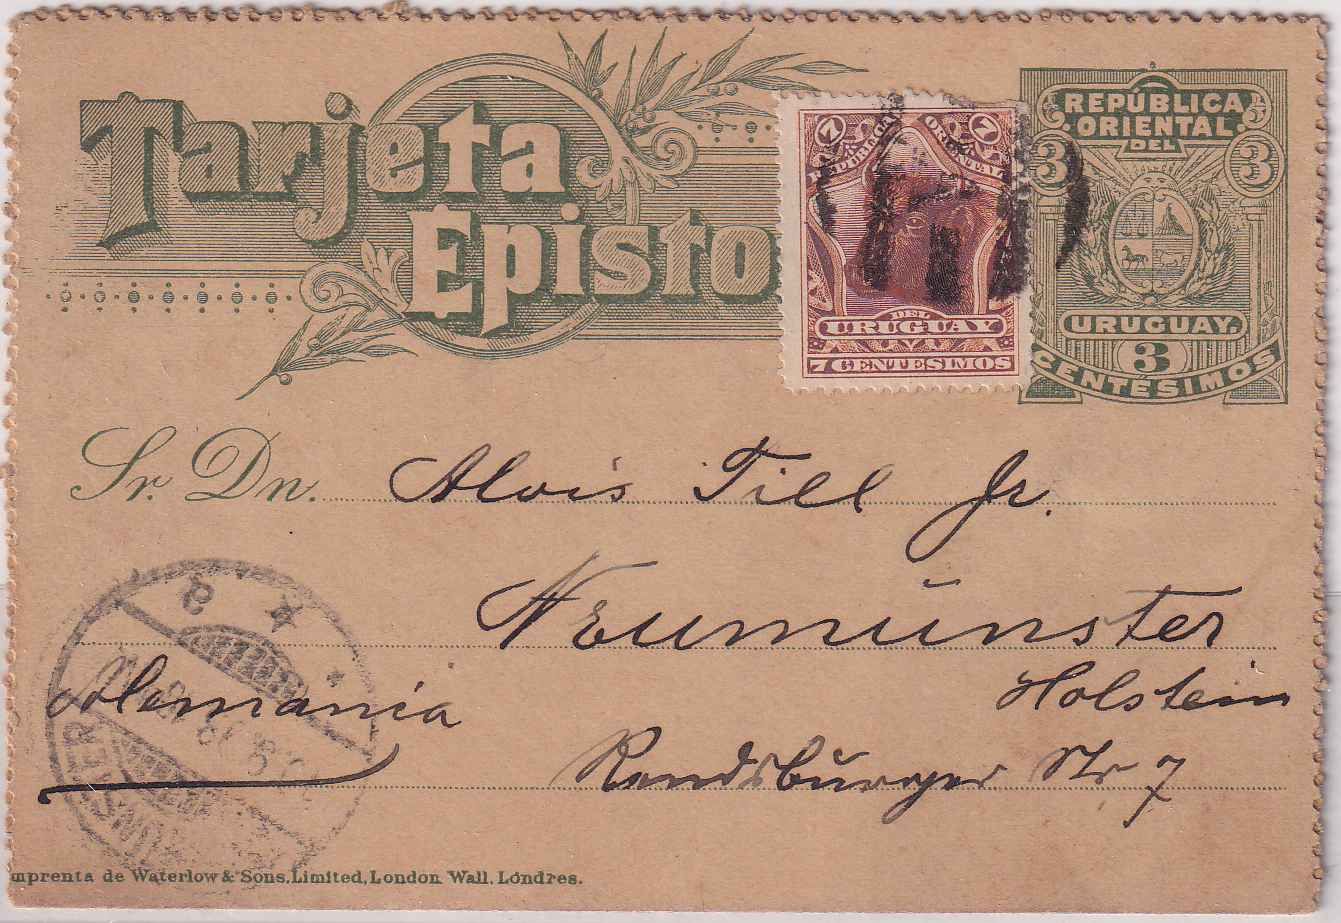 Tarjeta
Episto
7 7
REPUBLICA ORIENTAL
DEL
URUGUAY
7 CENTESIMOS
REPÚBLICA
ORIENTAL
DEL
3 3
URUGUAY.
3
CENTÉSIMOS
Sr. Dn. Alois Till Jr.
Neumünster
Holstein
Alemania
Rendsburger Str 7
mprenta de Waterlow & Sons, Limited, London Wall, Lóndres.